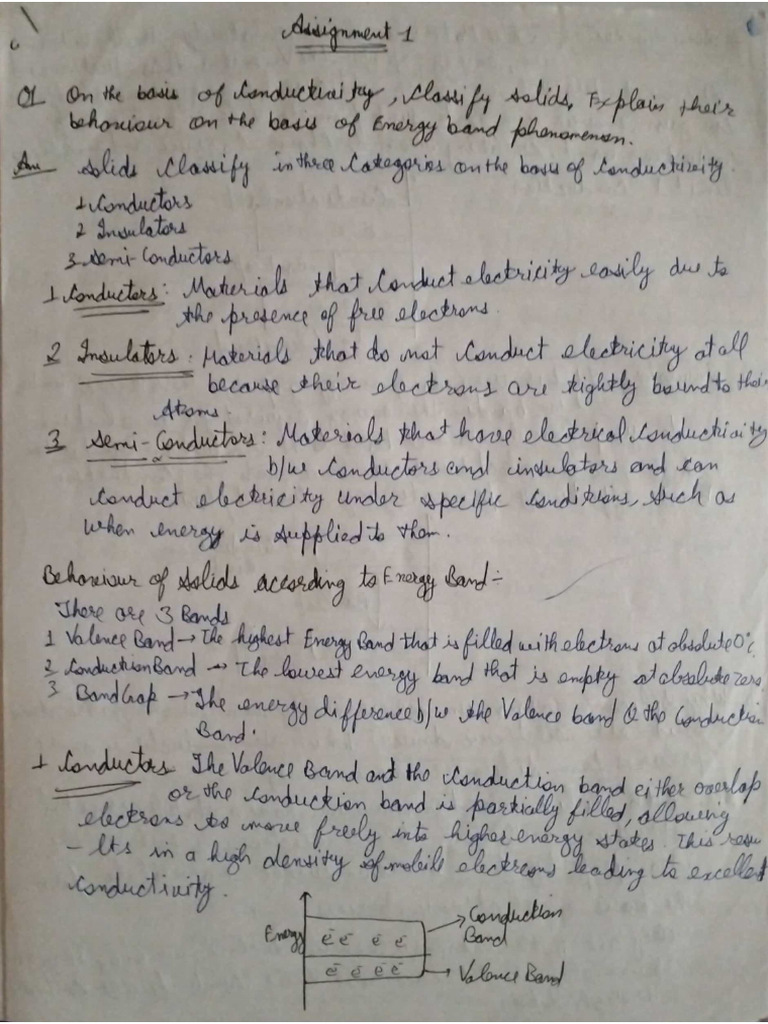 Assignment 1
Q1 On the basis of Conductivity, Classify solids, Explain their
behaviour on the basis of Energy band phenomenon.
Ans Solids Classify in three Categories on the basis of Conductivity.
1 Conductors
2 Insulators
3 Semi-Conductors
1 Conductors: Materials that Conduct electricity easily due to
the presence of free electrons.
2 Insulators: Materials that do not Conduct electricity at all
because their electrons are tightly bound to their
Atoms.
3 Semi-Conductors: Materials that have electrical Conductivity
b/w Conductors and insulators and can
Conduct electricity under specific Conditions, such as
when energy is supplied to them.
Behaviour of Solids according to Energy Band:-
There are 3 Bands
1 Valence Band → The highest Energy Band that is filled with electrons at absolute 0°C
2 Conduction Band → The lowest energy band that is empty at absolute zero.
3 Band Gap → The energy difference b/w the Valence band & the Conduction
Band.
1 Conductors The Valence Band and the Conduction band either overlap
or the Conduction band is partially filled, allowing
electrons to move freely into higher energy states. This resu
-lts in a high density of mobile electrons leading to excellent
Conductivity.
Conduction
Band
Energy
e⁻ e⁻ e⁻ e⁻
e⁻ e⁻ e⁻ e⁻
Valence Band